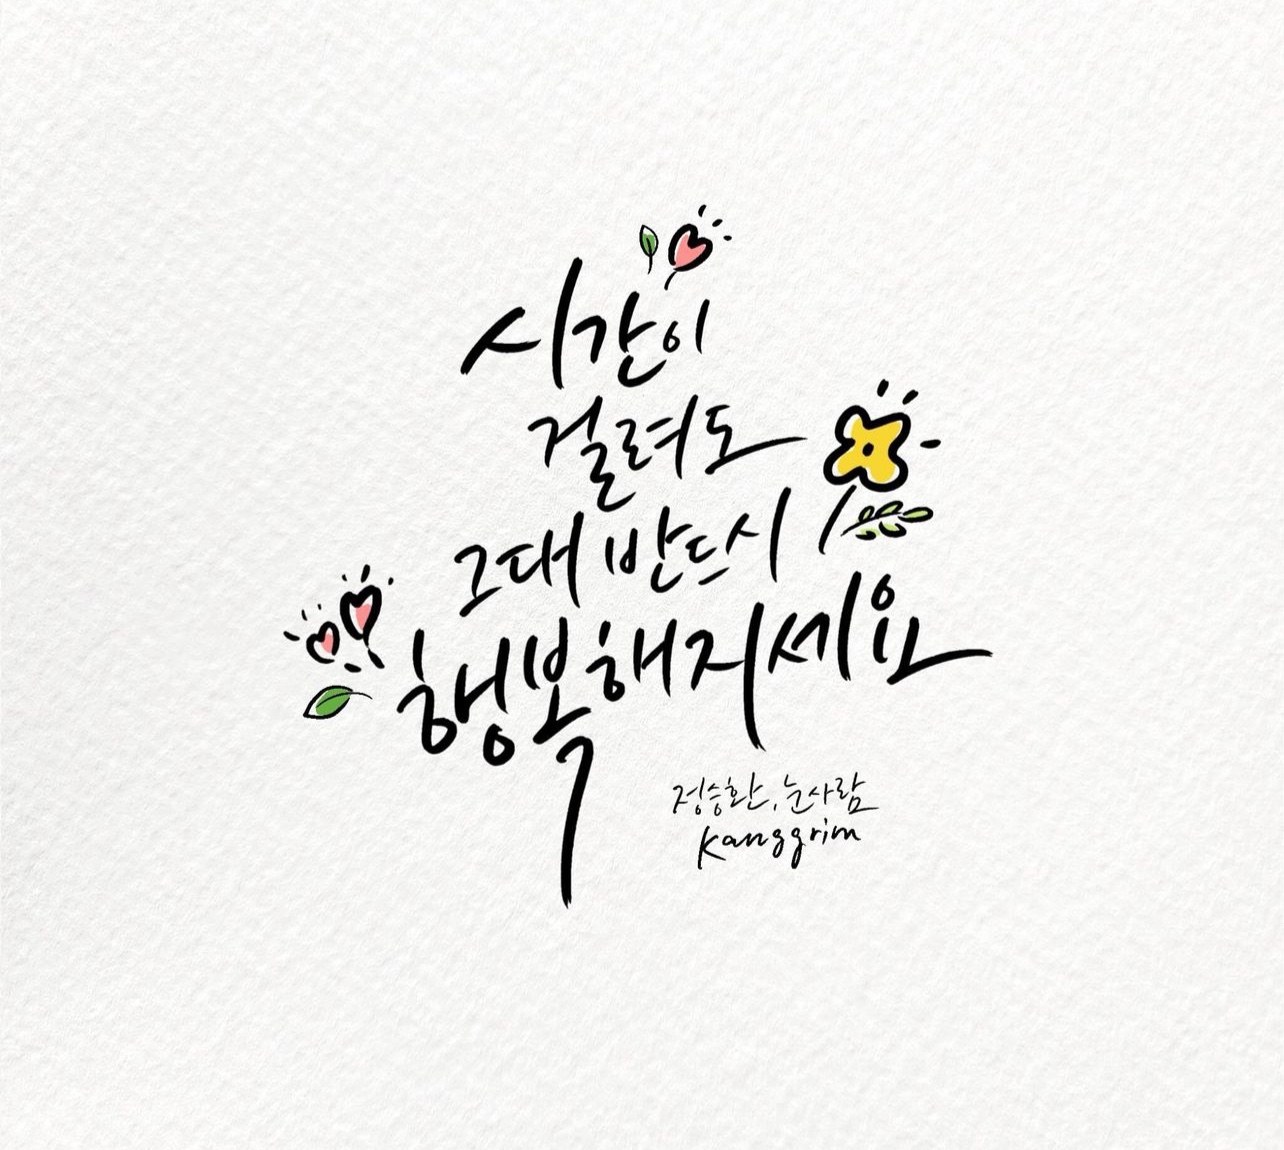 시간이
걸려도
그대 반드시
행복해지세요
정승환, 눈사람
Kanggrim